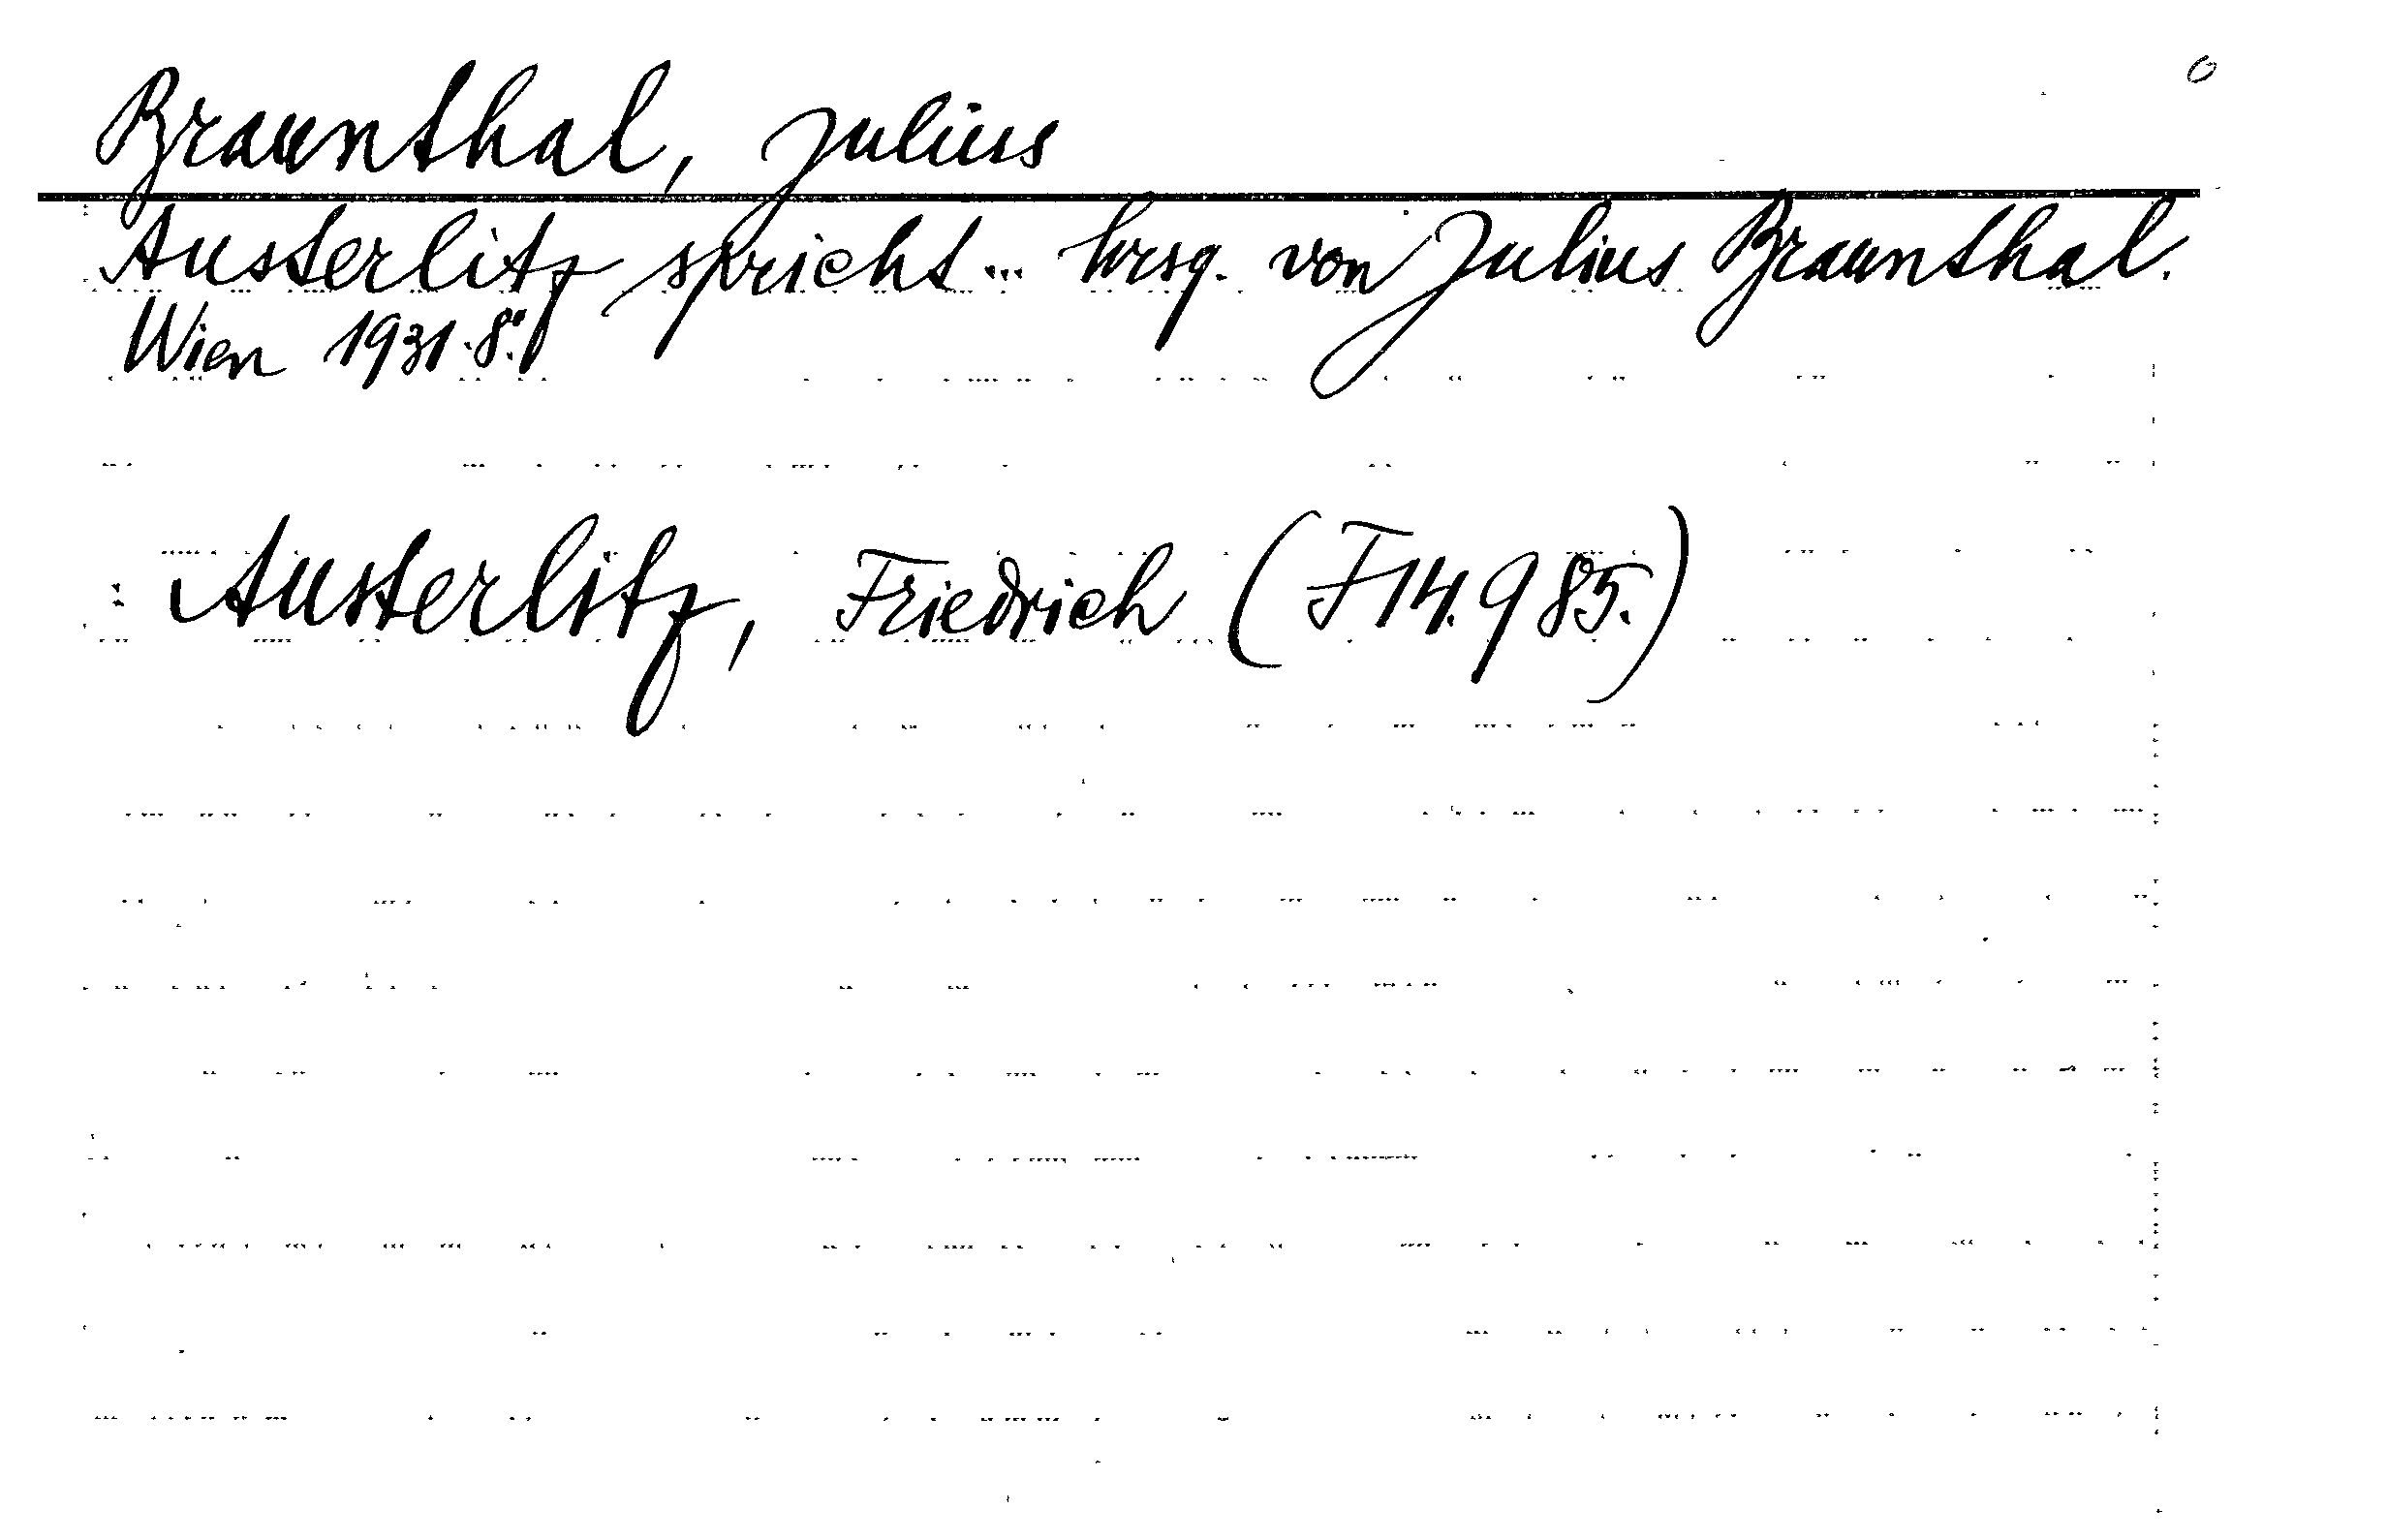 Braunthal, Julius
Austerlitz spricht ... hrsg. von Julius Braunthal.
Wien 1931. 8°.
: Austerlitz, Friedrich (F 14.985.)